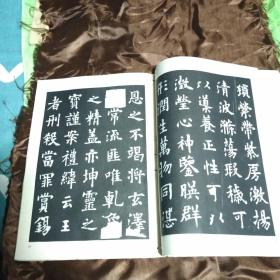 瑣縈帶紫房激揚
清波滌蕩瑕穢可
以導養正性可以
澂瑩心神鑒暎群
形潤生萬物同湛
恩之不竭將玄澤
常流匪唯乹象
之精盖亦坤靈之
寶謹案禮緯云王
者刑殺當罪賞錫